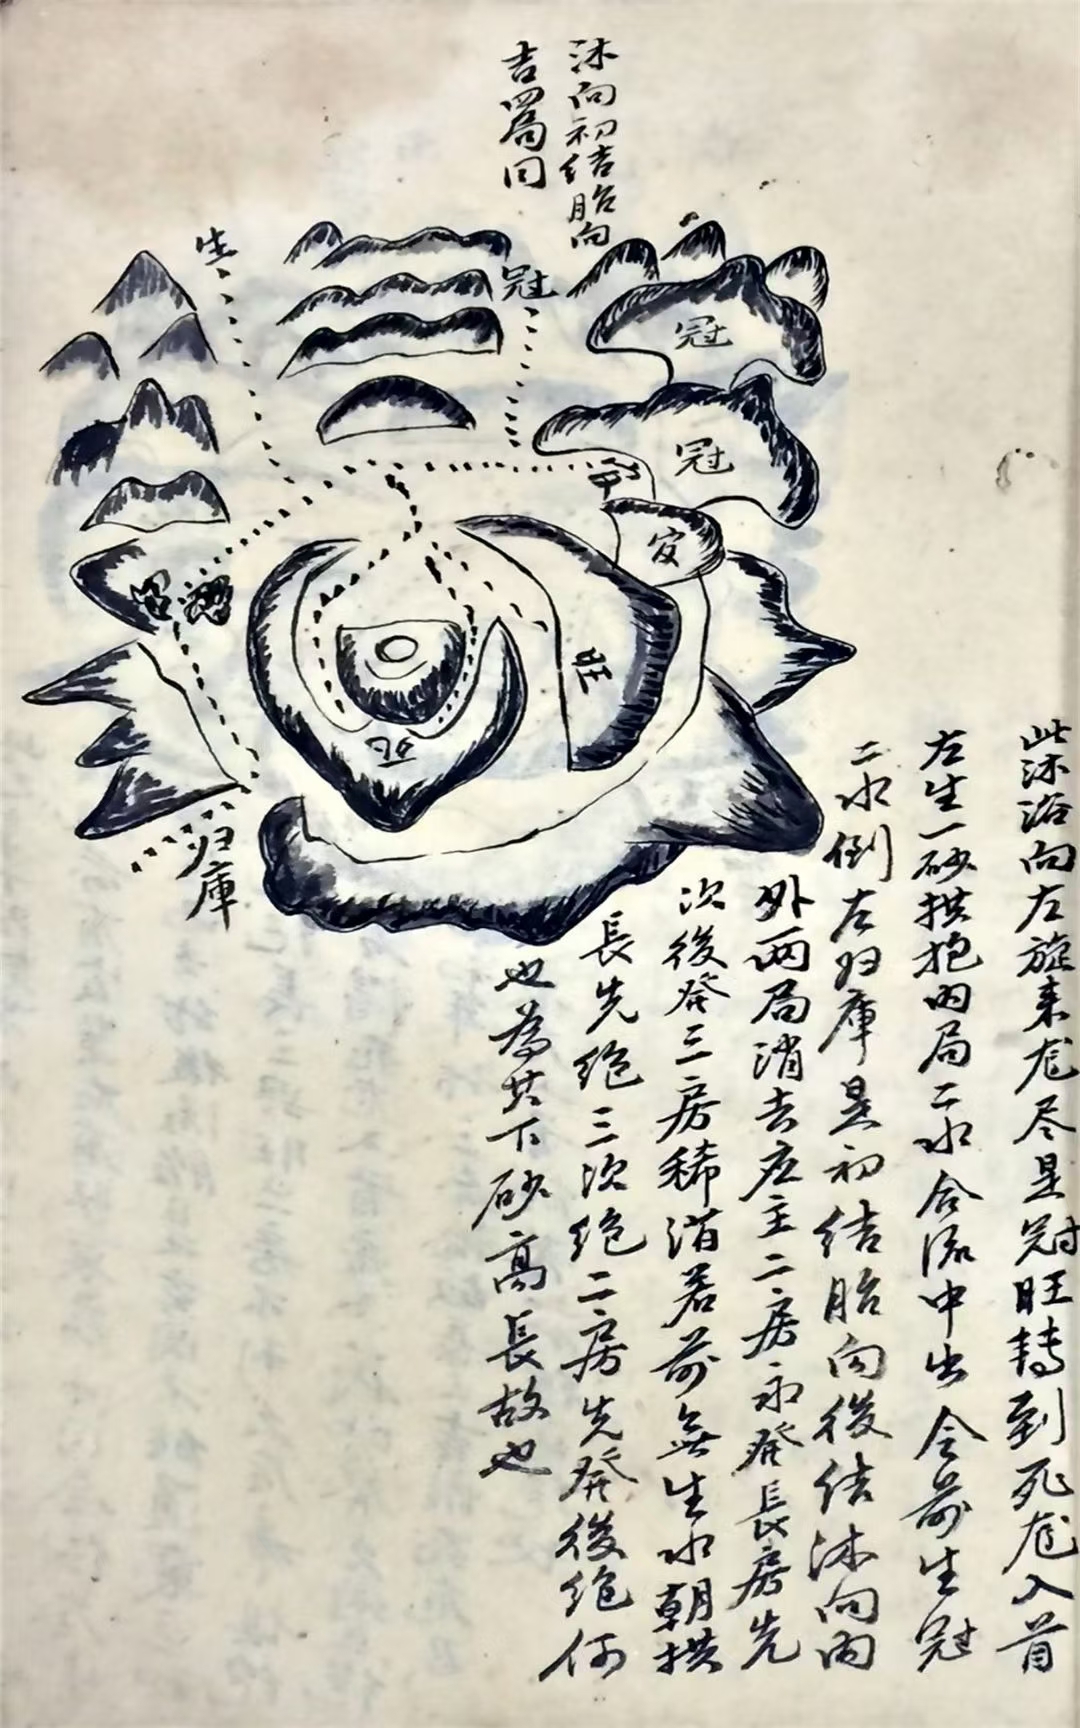 沐向初结胎向
吉局同
生
冠
冠
冠
官
旺
死
归庫
此沐浴向左旋来龙尽是冠旺轉到死龙入首
左生一砂拱抱内局二水合流中出会前生冠
二水倒左归庫是初结胎向後结沐向内
外两局消去应主二房永発長房先
次後発三房稀消若前無生水朝拱
長先绝三次绝二房先発後绝何
也為其下砂高長故也